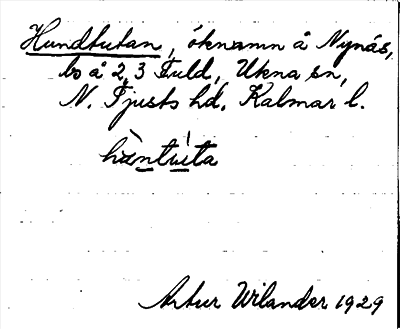 Hundtutan, öknamn å Nynäs,
bo å 2, 3 Fuld, Ukna sn,
N. Tjusts hd, Kalmar l.
hùntúta
Artur Wilander 1929